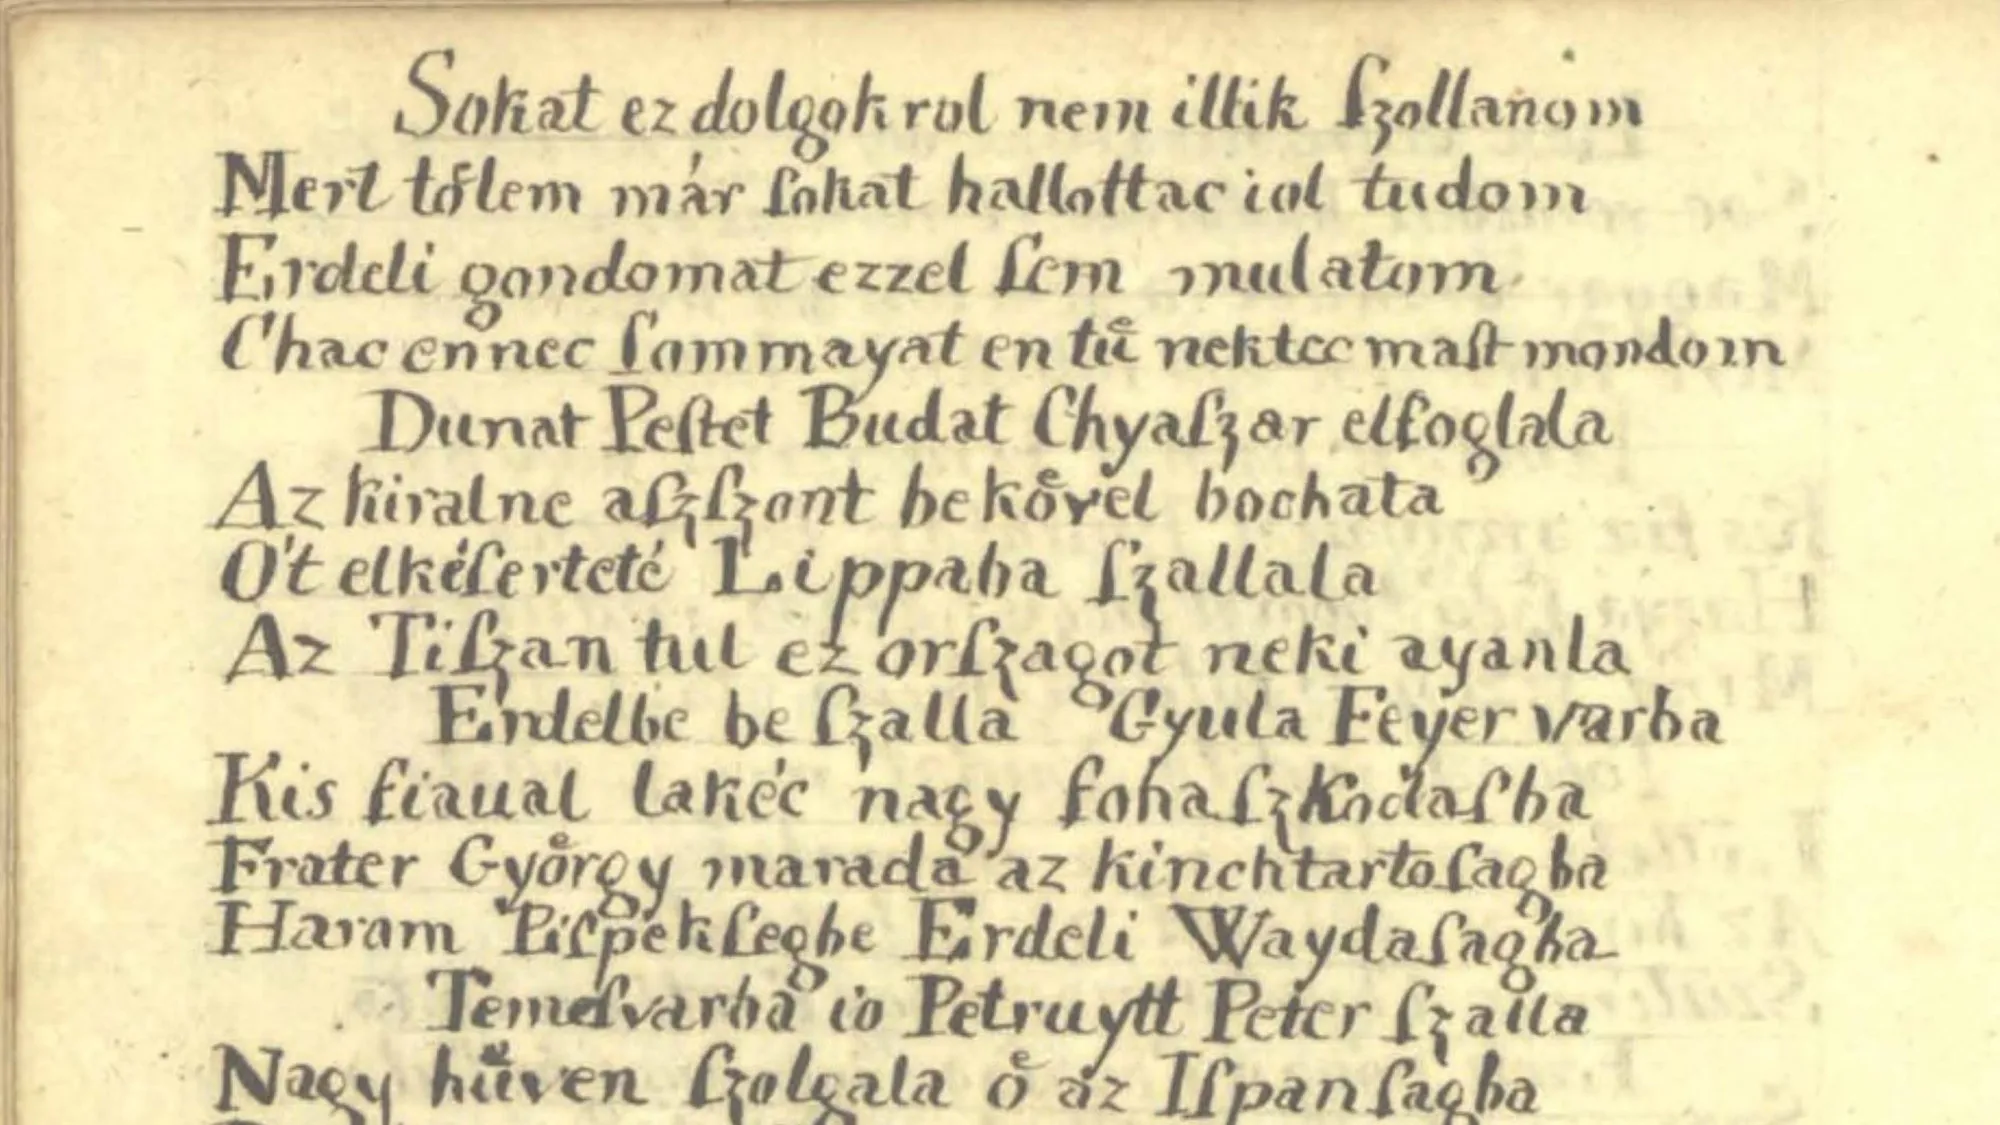 Sokat ez dolgokrol nem illik ſzollanom
Mert tőlem már ſokat hallottac iol tudom
Erdeli gondomat ezzel ſem mulatom
Chac ennec ſommayat en tuͤ nektec maſt mondom
Dunat Peſtet Budat Chyaſzar elfoglala
Az kiralne aſzſzont bekoͤvel bochata
O't elkéſerteté Lippaba ſzallala
Az Tiſzan tul ez orſzagot neki ayanla
Erdelbe be ſzalla Gyula Feyer varba
Kis fiaual lakéc nagy fohaſzkodaſba
Frater Gyoͤrgy marada az kinchtartoſagba
Harom Piſpekſegbe Erdeli Waydaſagba
Temeſvarba io Petruytt Peter ſzalla
Nagy huͤven ſzolgala oͤ az Iſpanſagba